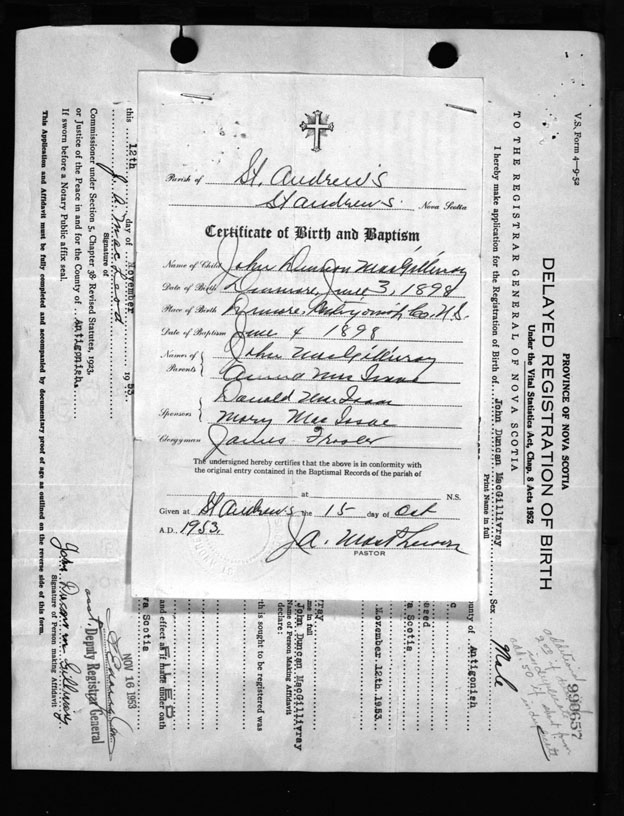 Parish of St. Andrew's
St Andrews. Nova Scotia
Certificate of Birth and Baptism
Name of Child John Duncan MacGillivray
Date of Birth Dunmore, June 3, 1898
Place of Birth Dunmore, Antigonish Co. N.S.
Date of Baptism June 4 1898
Names of Parents John MacGillivray
Anna MacIsaac
Sponsors Donald MacIsaac
Mary MacIsaac
Clergyman James Fraser
The undersigned hereby certifies that the above is in conformity with
the original entry contained in the Baptismal Records of the parish of
at N.S.
Given at St Andrews the 15 day of Oct
A.D. 1953.
J.A.
PASTOR
V.S. Form 4-9-52
PROVINCE OF NOVA SCOTIA
DELAYED REGISTRATION OF BIRTH
Under the Vital Statistics Act, Chap. 8 Acts 1952
TO THE REGISTRAR GENERAL OF NOVA SCOTIA
I hereby make application for the Registration of Birth of John Duncan MacGillivray, Sex Male
Print Name in full
990657
ounty of Antigonish
ored
a Scotia
November 12th 1953.
vray
in full
John Duncan MacGillivray
Name of Person Making Affidavit
declare:
rth is sought to be registered was
and effect as if made under oath
va Scotia
FILED
NOV 16 1953
asst. Deputy Registrar General
this 12th day of November 1953
J. A. MacLeod
Signature of
Commissioner under Section 5, Chapter 38 Revised Statutes, 1923.
or Justice of the Peace in and for the County of Antigonish.
If sworn before a Notary Public affix seal.
John Duncan Gillivray.
Signature of Person making Affidavit
This Application and Affidavit must be fully completed and accompanied by documentary proof of age as outlined on the reverse side of this form.